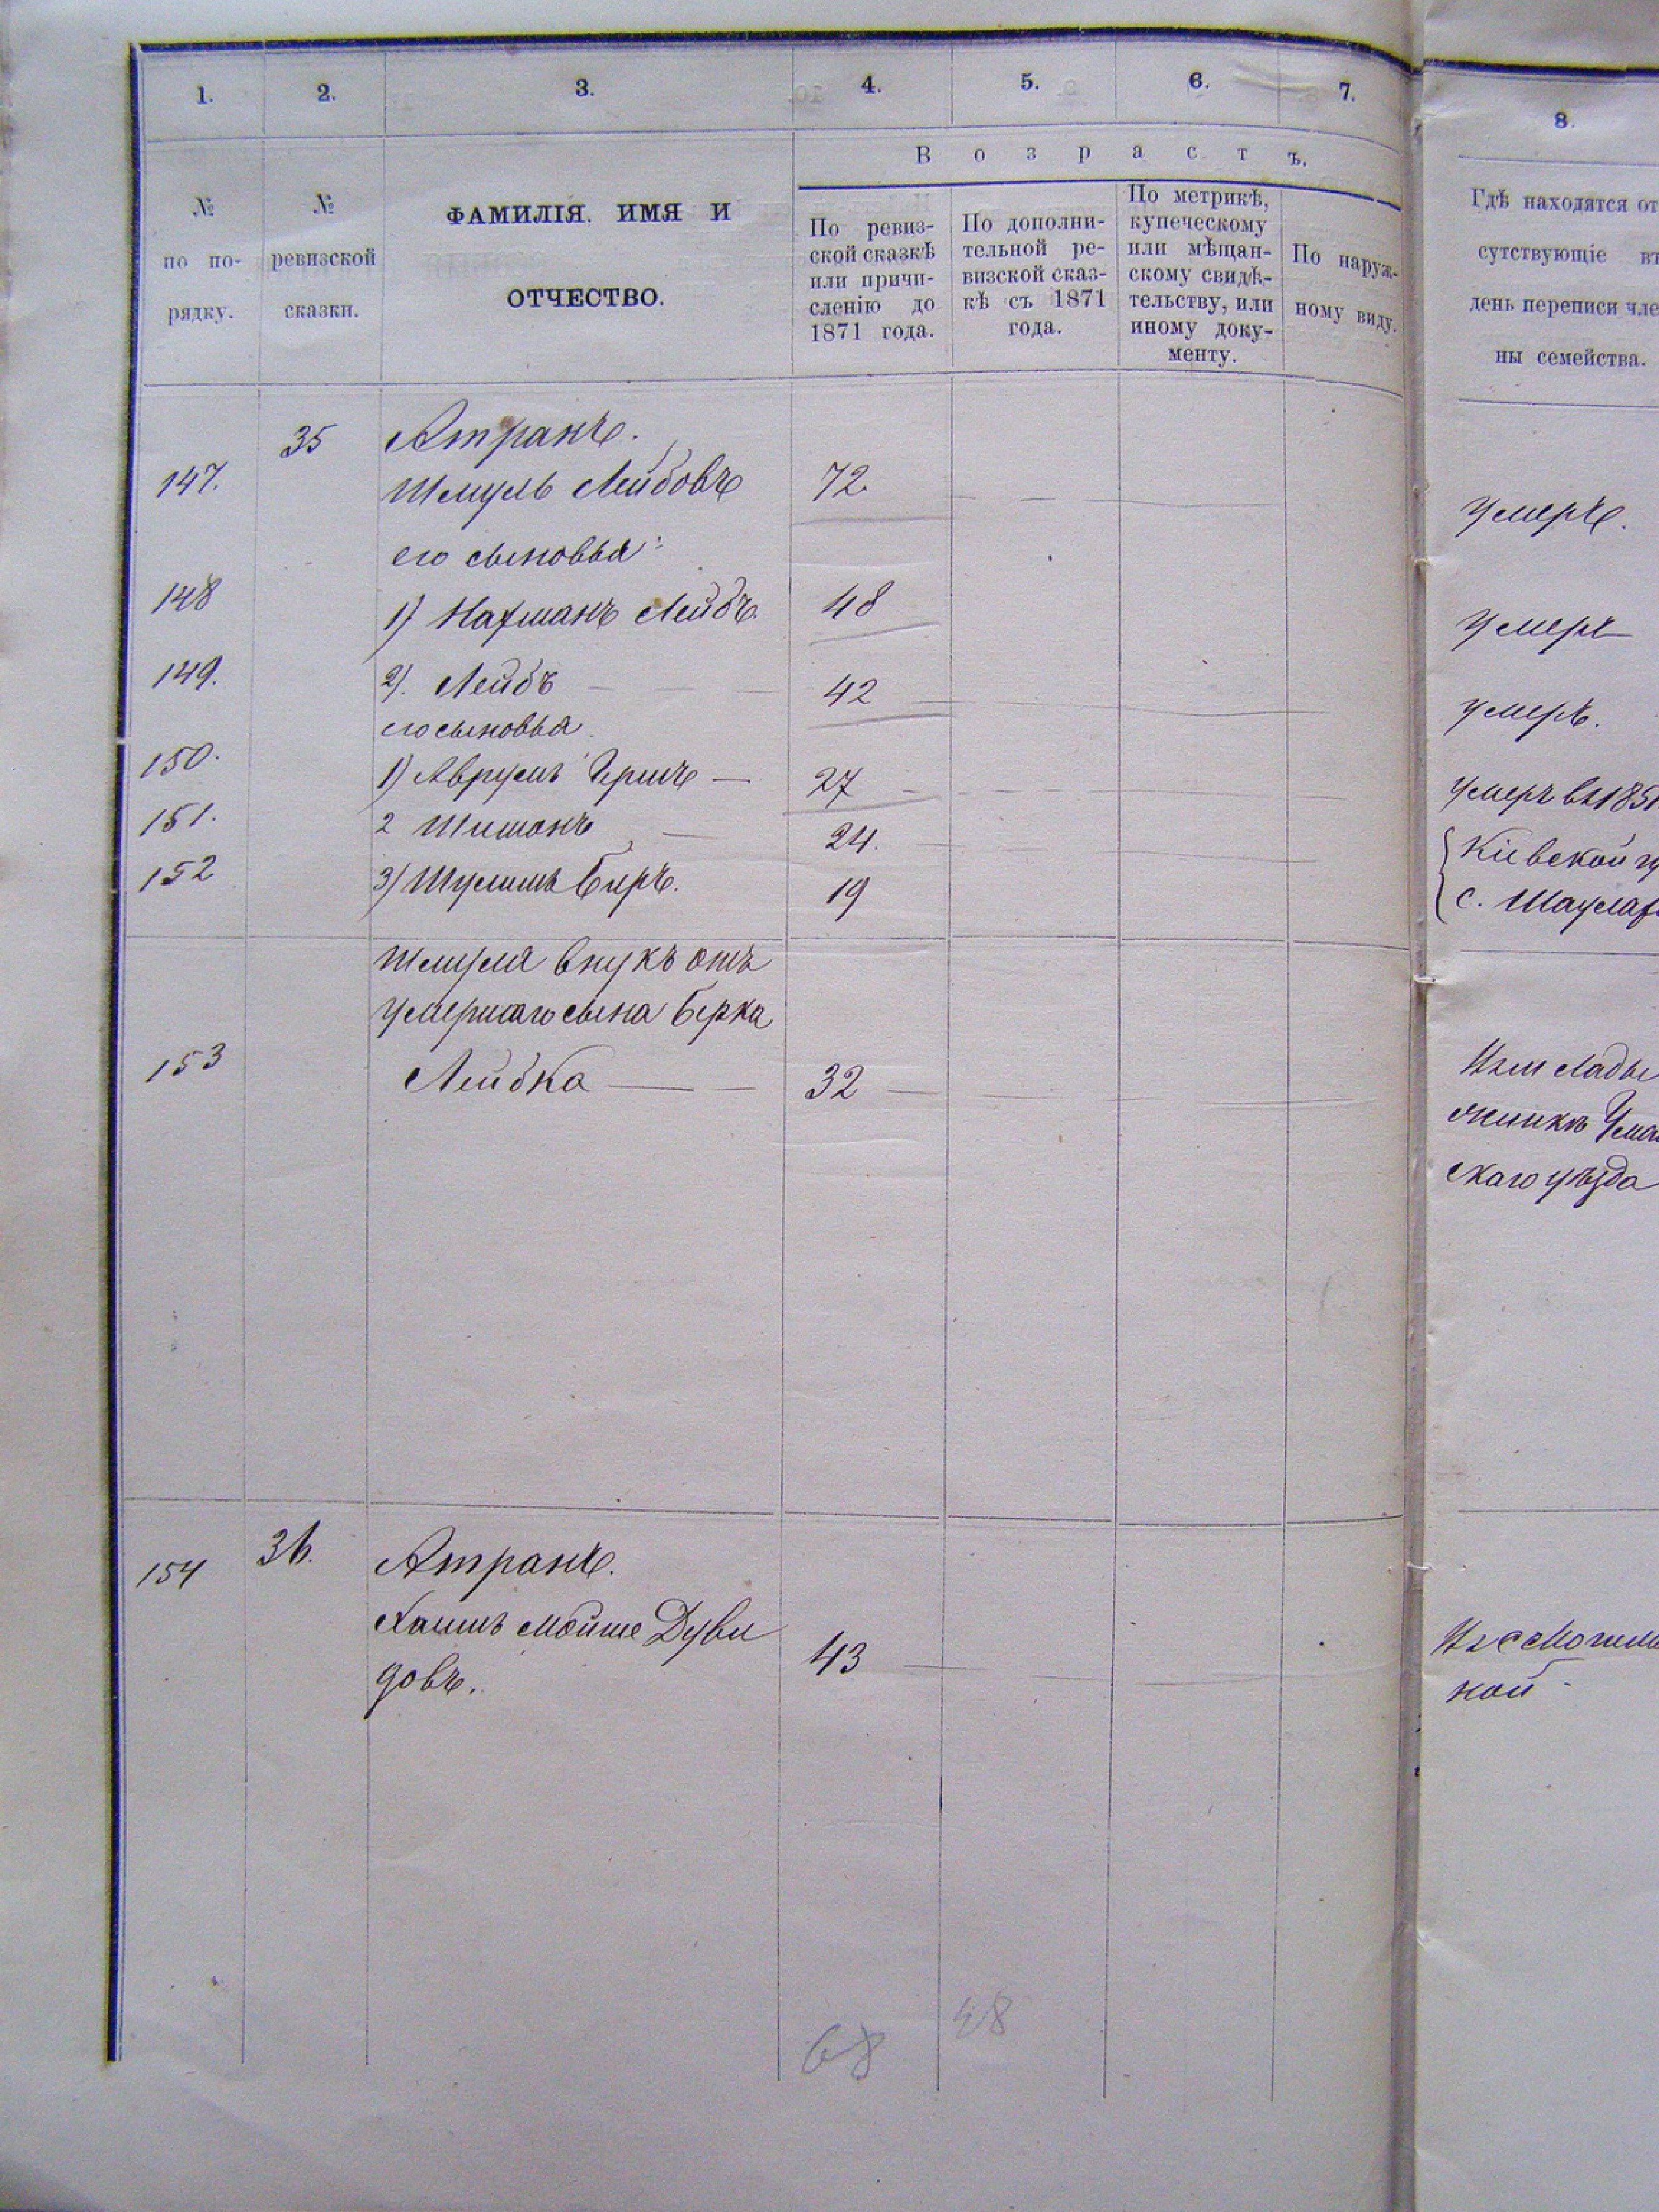 1. 2. 3. 4. 5. 6. 7. 8.
Возрастъ.
№ по по-рядку.
№ ревизской сказки.
ФАМИЛІЯ. ИМЯ И
ОТЧЕСТВО.
По ревиз-
ской сказкѣ
или причи-
сленію до
1871 года.
По дополни-
тельной ре-
визской сказ-
кѣ съ 1871
года.
По метрикѣ,
купеческому
или мѣщан-
скому свидѣ-
тельству, или
иному доку-
менту.
По наруж-
ному виду.
Гдѣ находятся от
сутствующіе въ
день переписи чле
ны семейства.
35 Атранъ.
147. Шмуль Лейбовъ 72 умеръ.
его сыновья:
148 1) Нахманъ Лейбъ 48 умеръ
149. 2). Лейбъ 42 умеръ.
его сыновья.
150. 1) Аврумъ Гершъ 27 умеръ въ 185
151. 2 Шимонъ 24. Кіевской гу
152 3) Шулимъ Беръ. 19 с. Шаулах
Шмуля внукъ отъ
умершаго сына Берка
153 Лейбка 32 Въ м Лады
жинкѣ Уман
скаго уѣзда
36. Атранъ.
154
Хаимъ Мойше Дуви
довъ. 43
ной
68 48